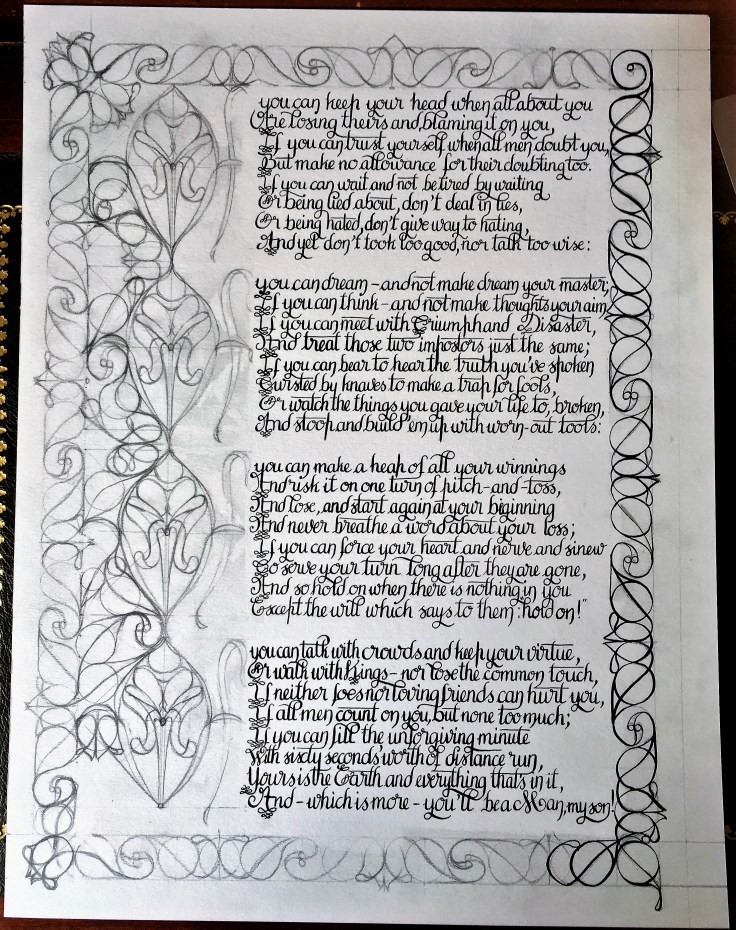 you can keep your head when all about you
Are losing theirs and blaming it on you,
If you can trust yourself when all men doubt you,
But make no allowance for their doubting too.
If you can wait and not be tired by waiting
Or being lied about, don't deal in lies,
Or being hated, don't give way to hating,
And yet don't look too good, nor talk too wise:
you can dream - and not make dream your master;
If you can think - and not make thoughts your aim,
If you can meet with Triumph and Disaster,
And treat those two impostors just the same;
If you can bear to hear the truth you've spoken
Twisted by knaves to make a trap for fools,
Or watch the things you gave your life to, broken,
And stoop and build 'em up with worn-out tools:
you can make a heap of all your winnings
And risk it on one turn of pitch-and-toss,
And lose, and start again at your biginning
And never breathe a word about your loss;
If you can force your heart and nerve and sinew
To serve your turn long after they are gone,
And so hold on when there is nothing in you
Except the will which says to them: hold on!"
you can talk with crowds and keep your virtue,
Or walk with Kings - nor lose the common touch,
If neither foes nor loving friends can hurt you,
If all men count on you, but none too much;
If you can fill the unforgiving minute
With sixty seconds' worth of distance run,
Yours is the Earth and everything that's in it,
And - which is more - you'll be a Man, my son!